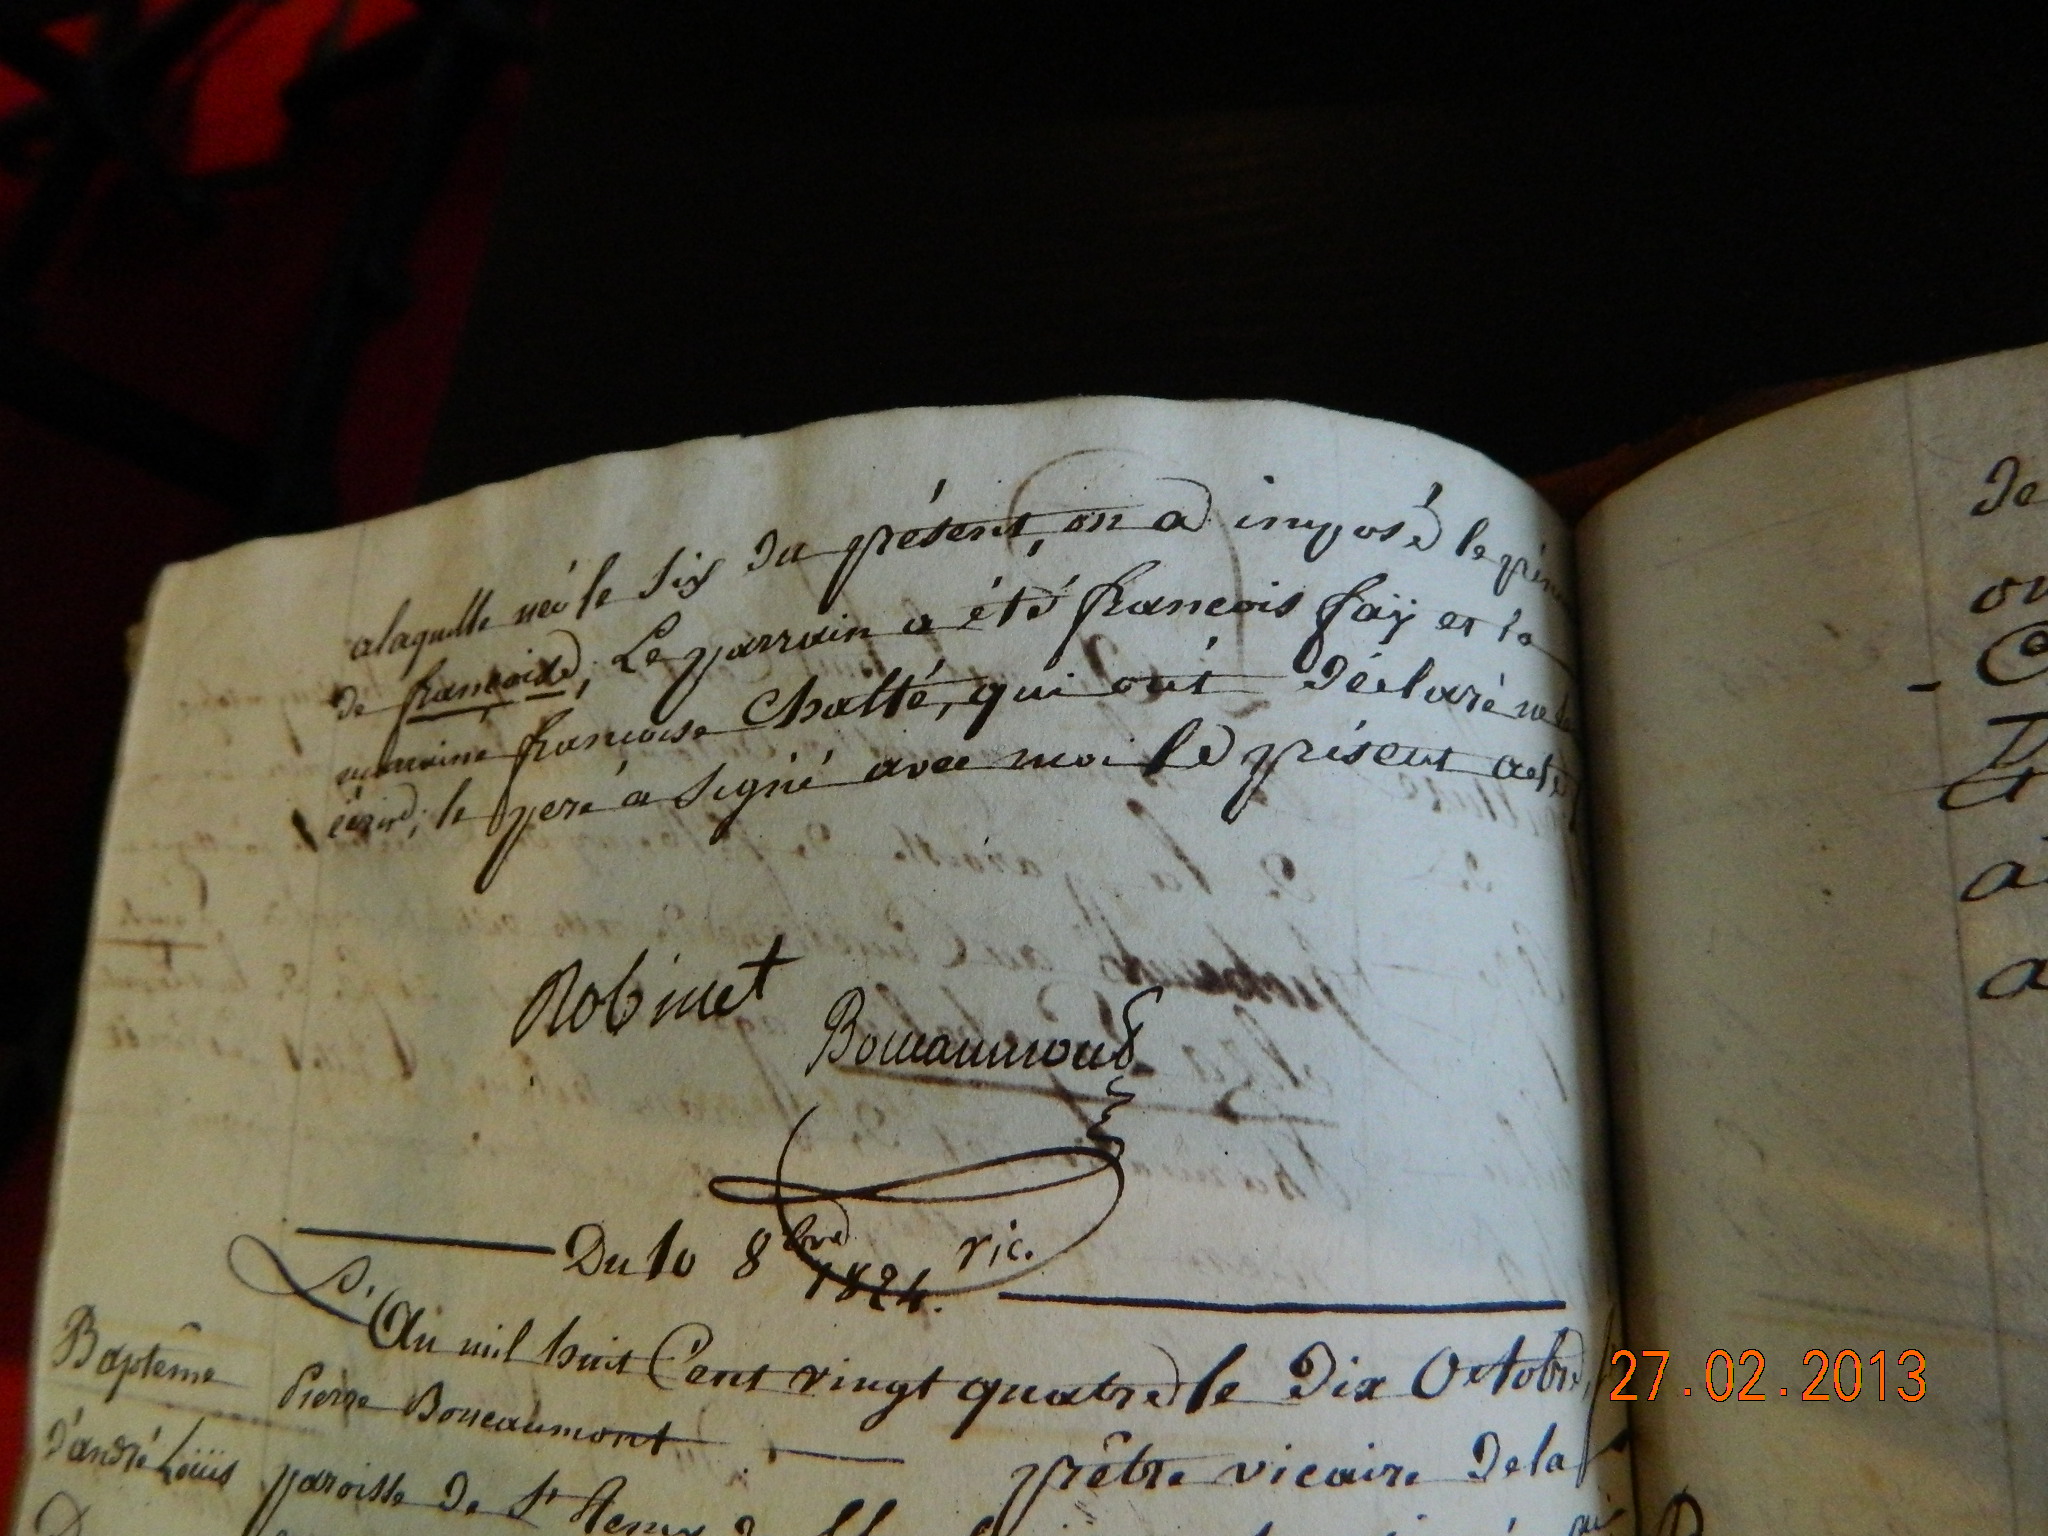 alaquelle née le six du présent, on a imposé le prén
de françoise, Le parrain a été françois faÿ et la
maraine françoise Chatté, qui ont déclaré ne
écrire; le peré a signé avec moi le présent acte
Robinet
Boucaumont
vic.
Du 10 8bre 1824.
L'An mil huit Cent vingt quatre le dix Octobre,
Baptême
Pierre Boucaumont prêtre vicaire dela
d'andré Loüis
paroisse de St Remy
de
27.02.2013